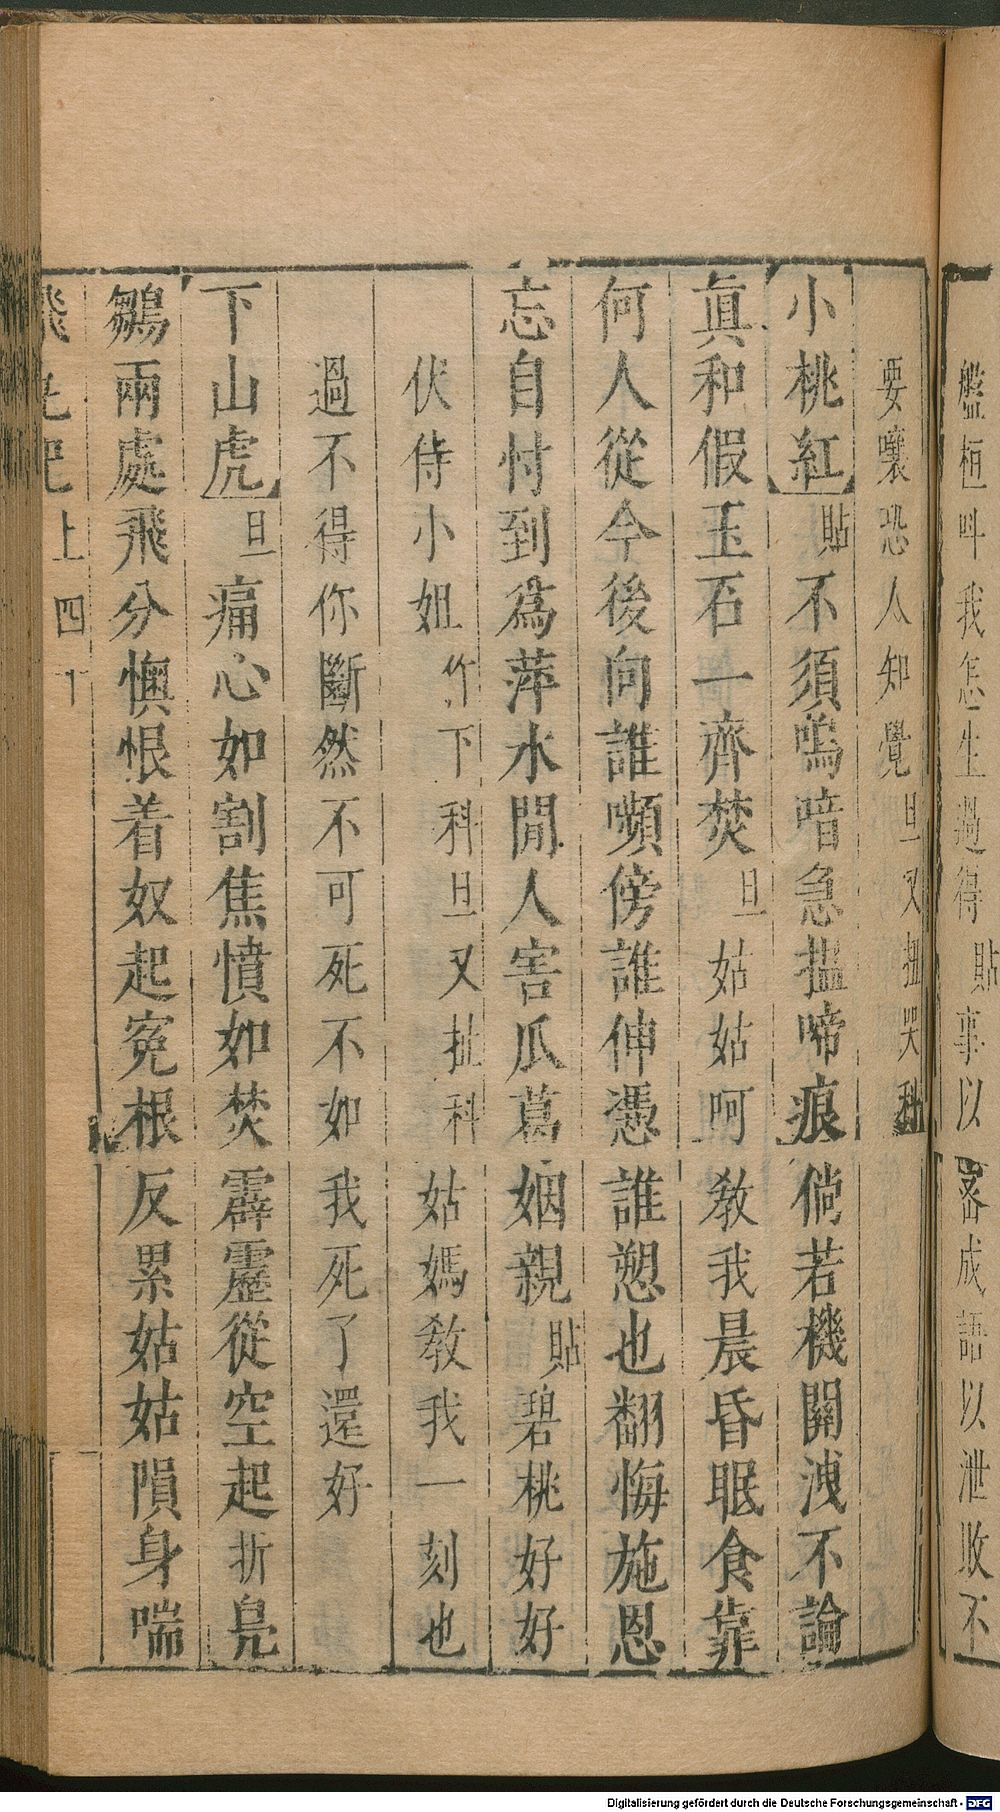 盤桓叫我怎生過得貼事以密成語以泄敗不
要嚷恐人知覺旦又扭哭科
小桃紅貼不須嗚喑急揾啼痕倘若機關洩不論
眞和假玉石一齊焚旦姑姑呵敎我晨昏眠食靠
何人從今後向誰嚬傍誰伸憑誰愬也翻悔施恩
忘自忖到爲萍水閒人害瓜葛姻親貼碧桃好好
伏侍小姐竹下科旦又扯科姑媽敎我一刻也
過不得你斷然不可死不如我死了還好
下山虎旦痛心如割焦憤如焚霹靂從空起折鳧
鶵兩處飛分懊恨着奴起寃根反累姑姑隕身喘
上四十
Digitalisierung gefördert durch die Deutsche Forschungsgemeinschaft - DFG